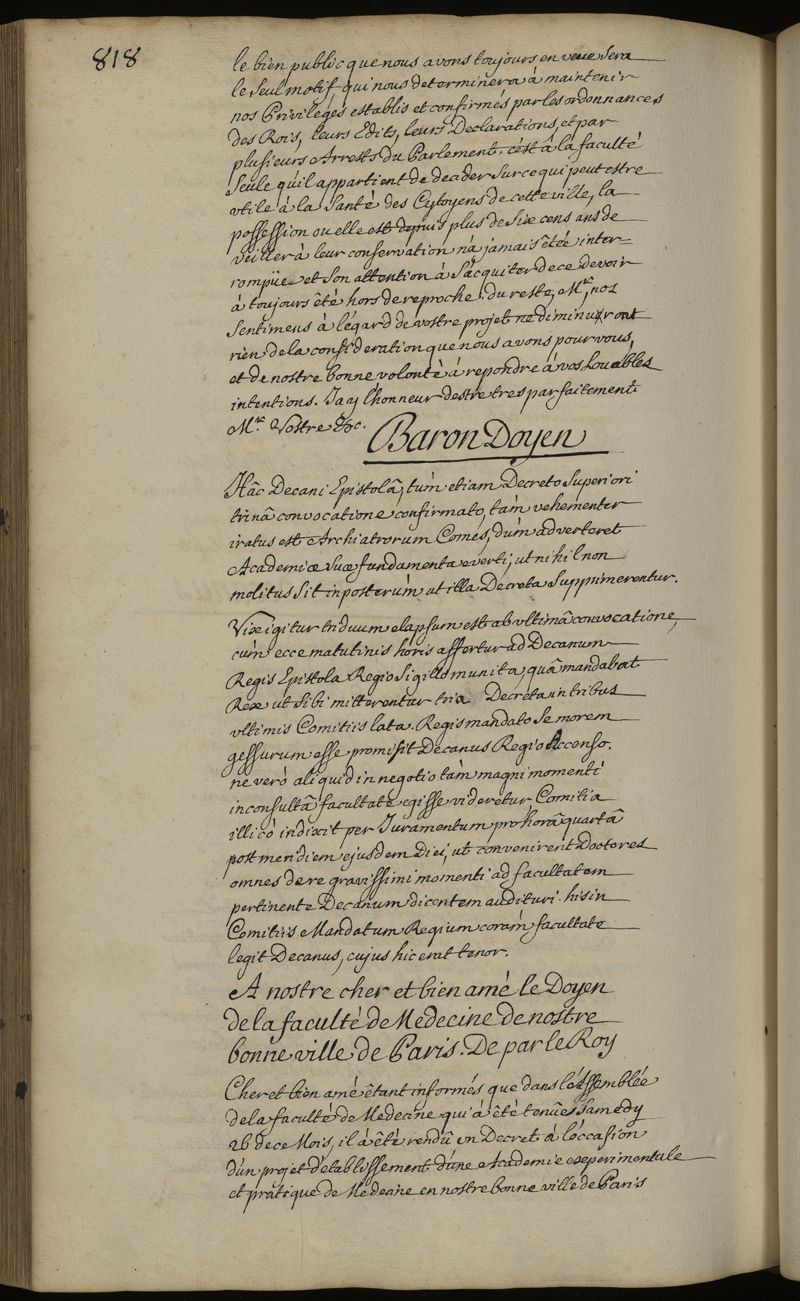 818
le bien public que nous avons toujours en veue sera
le seul motif, qui nous determinera à maintenir
nos Privileges establis et confirmés par les ordonnances
des Rois, leurs Edits, leurs Declarations, et par
plusieurs Arrests du Parlement. c'est à la faculté
seule qu'il appartient de decider sur ce qui peut estre
utile à la santé des Cytoyens de cette ville, la
possession ou elle est depuis plus de six cens ans de
veiller à leur conservation n'a jamais êtée inter=
rompüe et son attention à s'acquiter de ce devoir
à toujours êté hors de reproche. du reste, Mr. nos
sentimens à l'égard de vostre projet ne diminuront
rien de la consideration que nous avons pour vous,
et de nostre bonne volontè à repondre à vos louables
intentions. Jay l'honneur d'estre tres parfaitement
Mr. Vostre &c.
Baron Doyen
Hâc Decani Epistolâ, tum etiam Decreto superiori
trinâ convocatione confirmato, tàm vehementer
iratus est Archiatrorum Comes, dùm adverteret
Academiæ suæ fundamenta everti, ut nihil non
molitus sit inposterùm ut illa Decreta supprimerentur.
Vix igitur triduum elapsum est ab ultimâ convocatione,
cùm ecce matutinis horis affertur ad Decanum
Regis Epistola Regio Sigillo munita, quâ mandabat
Rex ut sibi mitterentur tria Decreta in tribus
ultimis Comitiis lata. Regis mandato se morem
gessurum esse promisit Decanus Regio Accenso.
ne verò aliquid in negotio tàm magni momenti
inconsultâ facultate egisse videretur, Comitia
illicò indixit per Juramentum pro horâ quartâ
post meridiem ejusdem Diei, ut convenirent Doctores
omnes de re gravissimi momenti ad facultatem
pertinente Decanum dicentem audituri. his in
Comitiis Mandatum Regium coràm facultate
legit Decanus, cujus hic erat tenor.
A nostre cher et bien amé le Doyen
de la faculté de Medecine de nostre
bonne ville de Paris. De par le Roy
Cher et bien amé êtant informés que dans l'Assemblée
de la faculté de Medecine qui à êtè tenûe Samedy
26 de ce Mois, il à êté rendû un Decret à l'occasion
d'un projet d'etablissement d'une Academie experimentale
et pratique de Medecine en nostre bonne ville de Paris